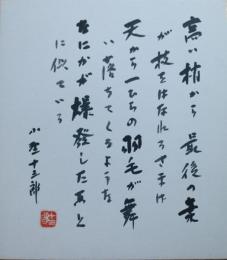 高い梢から最後の葉
が枝をはなれるさまは
天から一ひらの羽毛が舞
い落ちてくるようだ
なにかが爆発したあと
に似ている
小野十三郎